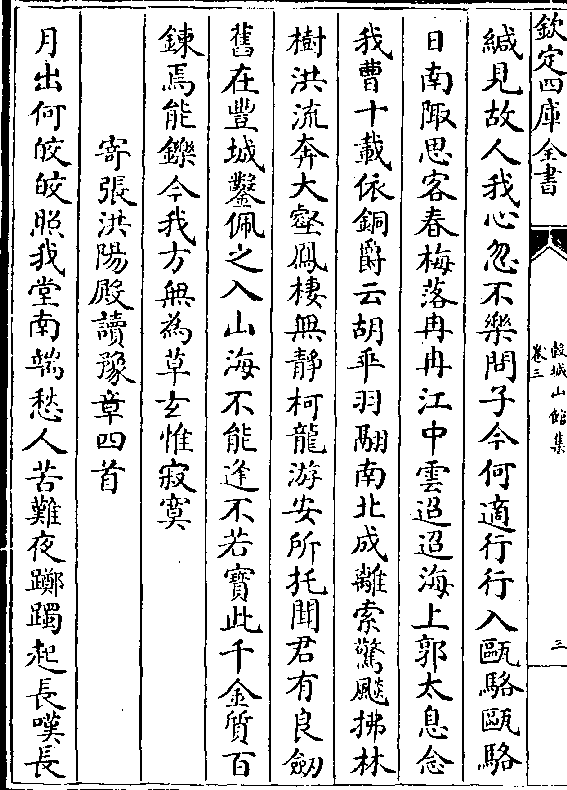 欽定四庫全書
榖城山館集
卷三
三
緘見故人我心忽不樂問子今何適行行入甌駱甌駱
日南陬思客春梅落冉冉江中雲迢迢海上郭太息念
我曹十載依銅爵云胡乖羽翮南北成離索驚飈拂林
樹洪流奔大壑鳳棲無静柯龍游安所托聞君有良劔
舊在豐城鑿佩之入山海不能逢不若寶此千金質百
錬焉能鑠今我方無為草玄惟寂寞
寄張洪陽殿讀豫章四首
月出何皎皎照我堂南端愁人苦難夜躑躅起長嘆長